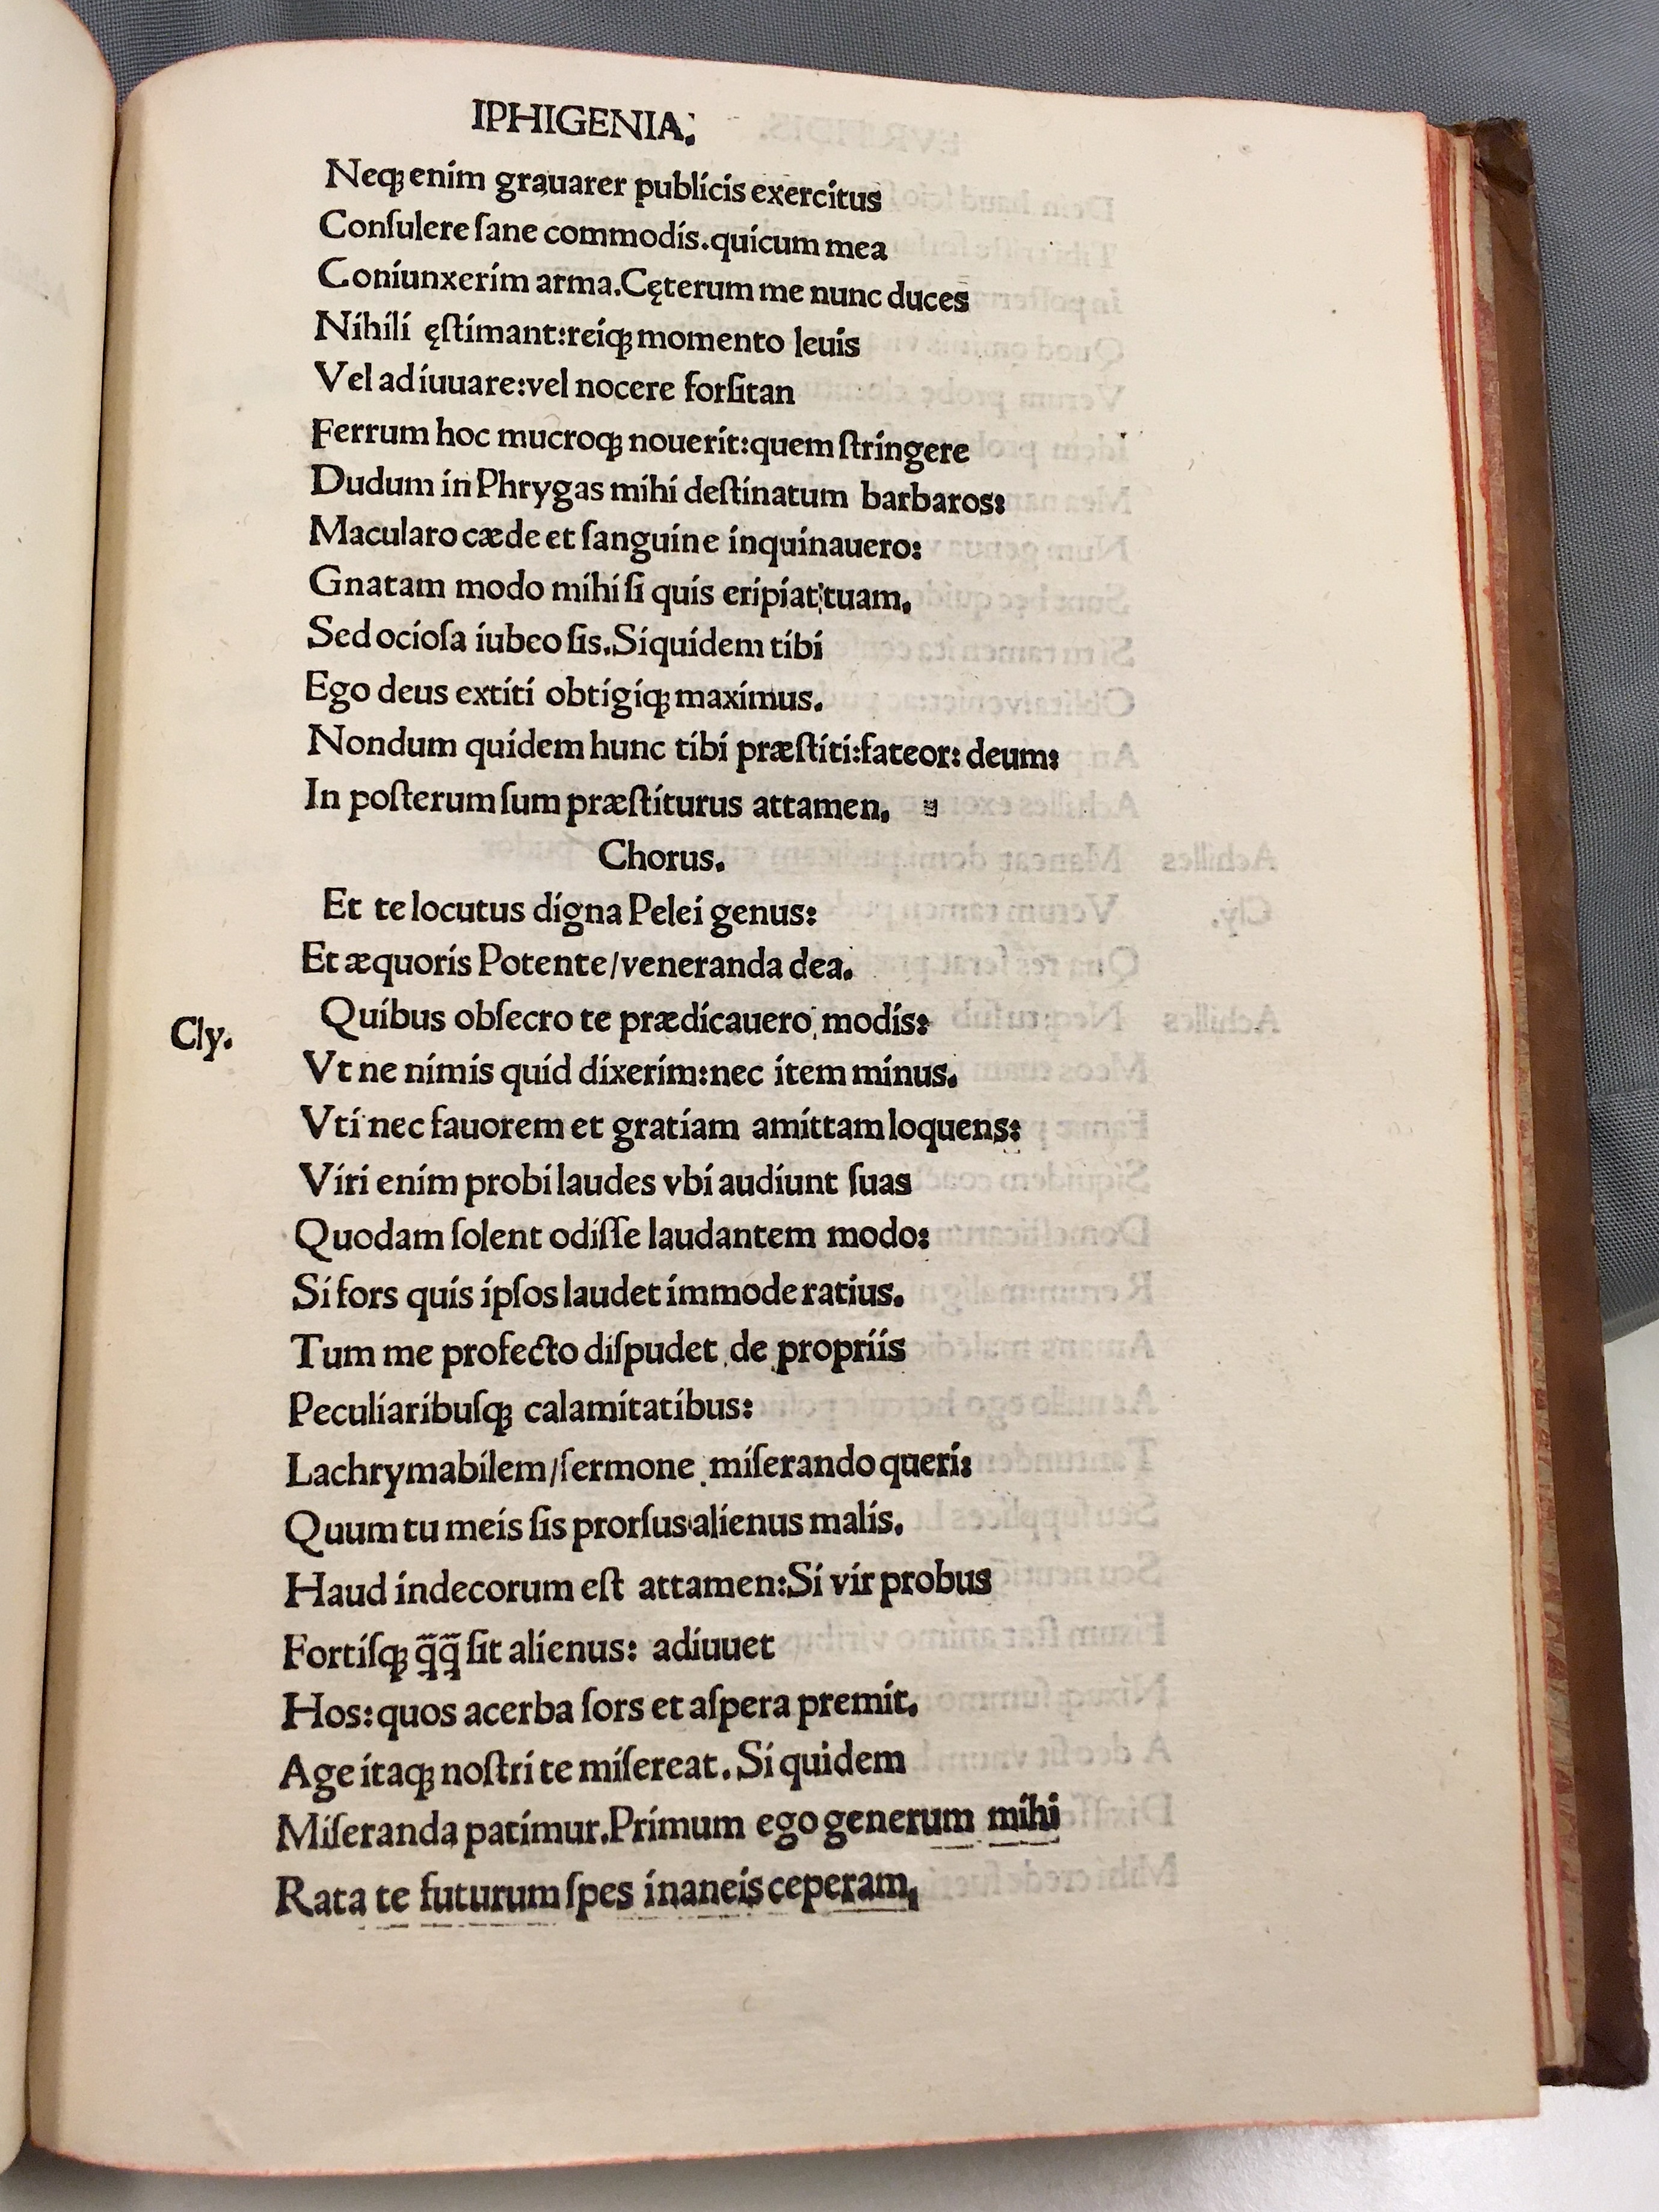 IPHIGENIA.
Neqꝫ enim grauarer publicis exercitus
Conſulere ſane commodis.quicum mea
Coniunxerim arma.Cęterum me nunc duces
Nihili ęſtimant:reiqꝫ momento leuis
Vel adiuuare:vel nocere forſitan
Ferrum hoc mucroqꝫ nouerit:quem ſtringere
Dudum in Phrygas mihi deſtinatum barbaros:
Macularo cæde et ſanguine inquinauero:
Gnatam modo mihi ſi quis eripiat tuam.
Sed ocioſa iubeo ſis.Siquidem tibi
Ego deus extiti obtigiqꝫ maximus.
Nondum quidem hunc tibi præſtiti:fateor: deum:
In poſterum ſum præſtiturus attamen.
Chorus.
Et te locutus digna Pelei genus:
Et æquoris Potente/veneranda dea.
Cly. Quibus obſecro te prædicauero modis:
Vt ne nimis quid dixerim:nec item minus.
Vti nec fauorem et gratiam amittam loquens:
Viri enim probi laudes vbi audiunt ſuas
Quodam ſolent odiſſe laudantem modo:
Si fors quis ipſos laudet immoderatius.
Tum me profecto diſpudet de propriis
Peculiaribuſqꝫ calamitatibus:
Lachrymabilem/ſermone miſerando queri:
Quum tu meis ſis prorſus alienus malis.
Haud indecorum eſt attamen:Si vir probus
Fortiſqꝫ q̄q̄ ſit alienus: adiuuet
Hos:quos acerba ſors et aſpera premit.
Age itaqꝫ noſtri te miſereat.Si quidem
Miſeranda patimur.Primum ego generum mihi
Rata te futurum ſpes inaneis ceperam,